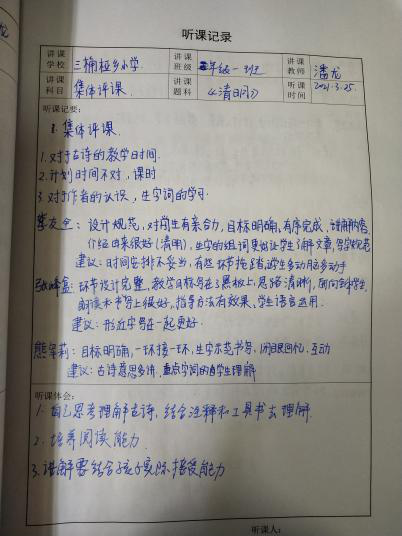 听课记录
讲课学校 三楠桠乡小学 讲课班级 二年级一班 讲课教师 潘龙
讲课科目 集体评课 讲课题科 《清明》 听课时间 2021.3.25.
听课记要:
集体评课.
1.对于古诗的教学时间.
2.计划时间不对,课时
3.对于作者的认识,生字词的学习.
设计规范,对学生有亲合力,目标明确,有序完成,讲解
介绍由来很好(清明),生字的组词 让学生了解文章,
建议:时间安排不妥当,有些环节拖 学生多动口多动手
环节设计完整,教学目标写在了黑板上,思路清晰,
朗读 书写上很好,指导方法有效果、学生语言运用.
建议:形近字写在一起更好.
熊 莉:目标明确,一环接一环,生字示范书写,闭眼回忆,互动
建议:古诗意思多讲,重点字词的 学生理解
听课体会:
1.自己思考理解古诗,结合注释和工具书去理解.
2.培养阅读能力
3.讲解要结合孩子实际接受能力
听课人: